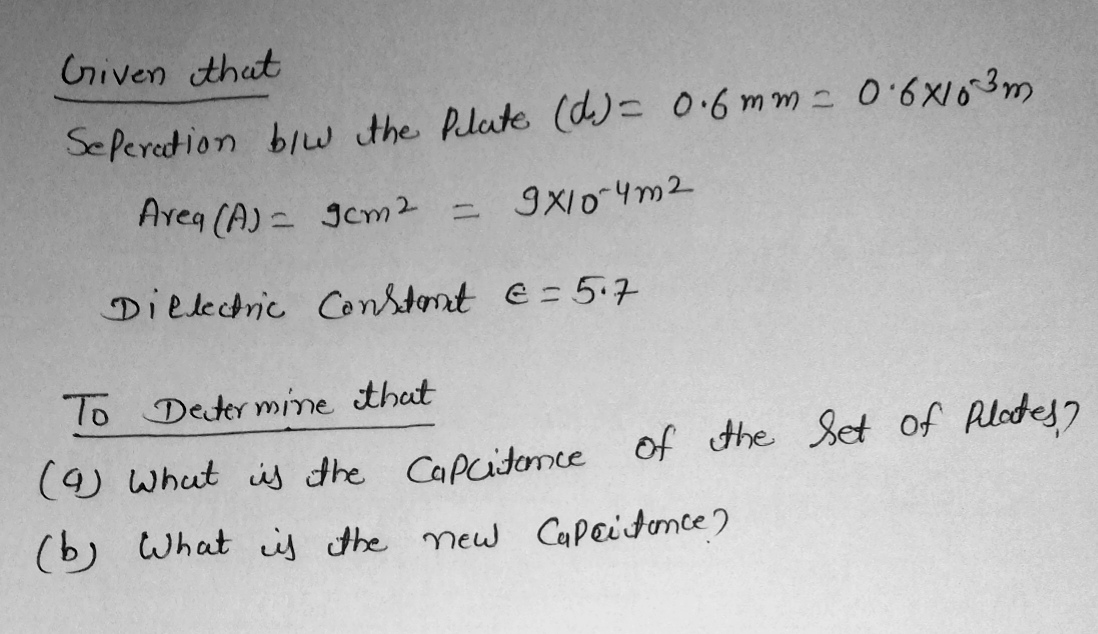 Given that
Seperation b/w the Plate (d) = 0.6 mm = 0.6×10⁻³m
Area (A) = 9cm² = 9×10⁻⁴m²
Dielectric Constant ∈ = 5.7
To Determine that
(a) What is the Capcitance of the Set of Plates?
(b) What is the new Capcitance?